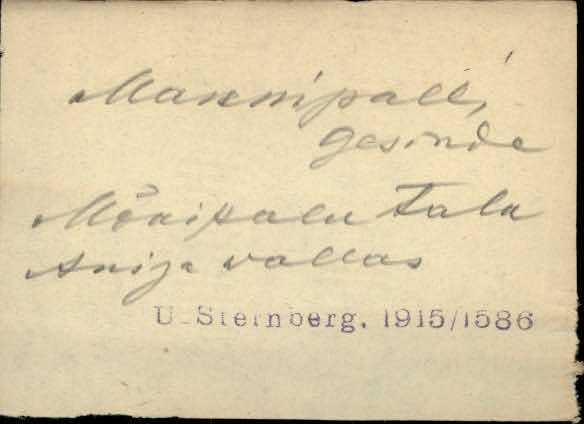 Mannipalli,
gesinde
Mõnipalu talu
Anija vallas
U. Sternberg. 1915/1586